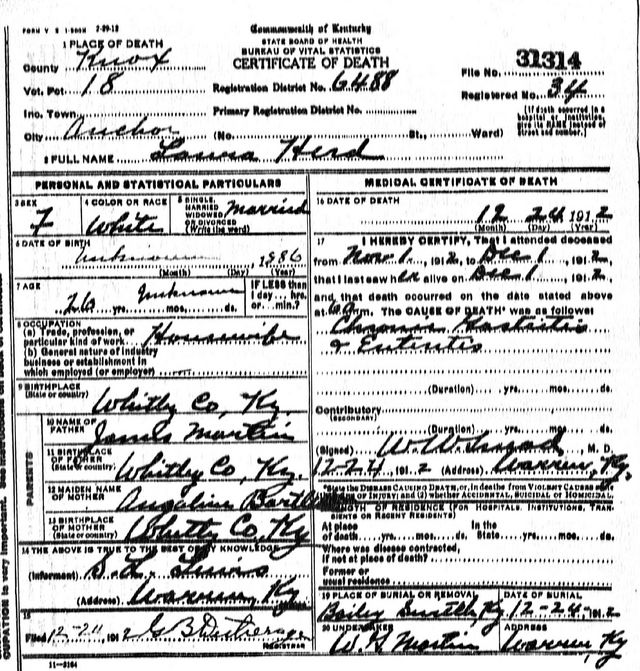 FORM V S 1-500M 7-29-12
Commonwealth of Kentucky
STATE BOARD OF HEALTH
BUREAU OF VITAL STATISTICS
CERTIFICATE OF DEATH
1 PLACE OF DEATH
County Knox
Vot. Pct 18
Inc. Town
City Anchor (No. St., Ward)
Registration District No. 6488
Primary Registration District No.
File No. 31314
Registered No. 34
[If death occurred in a hospital or institution, give its NAME instead of street and number.]
2 FULL NAME Laura Herd
PERSONAL AND STATISTICAL PARTICULARS
3 SEX F
4 COLOR OR RACE White
5 SINGLE, MARRIED WIDOWED OR DIVORCED (Write the word) Married
6 DATE OF BIRTH unknown, 1886
(Month) (Day) (Year)
7 AGE 26 yrs. Unknown mos. ds.
IF LESS than 1 day... hrs. or... min.?
8 OCCUPATION
(a) Trade, profession, or particular kind of work Housewife
(b) General nature of industry business or establishment in which employed (or employer)
9 BIRTHPLACE (State or country) Whitly Co, Ky.
PARENTS
10 NAME OF FATHER James Martin
11 BIRTHPLACE OF FATHER (State or country) Whitly Co, Ky.
12 MAIDEN NAME OF MOTHER Angeline
13 BIRTHPLACE OF MOTHER (State or country) Whitly Co, Ky
14 THE ABOVE IS TRUE TO THE BEST OF MY KNOWLEDGE
(Informant) S. L. Lewis
(Address) Warren, Ky
15
Filed 191 2 G B
REGISTRAR
11-3184
MEDICAL CERTIFICATE OF DEATH
16 DATE OF DEATH
12 24 1912
(Month) (Day) (Year)
17 I HEREBY CERTIFY, That I attended deceased
from Nov 1, 1912, to Dec 1, 1912,
that I last saw her alive on Dec 1, 1912,
and that death occurred on the date stated above
at m. The CAUSE OF DEATH* was as follows:
& Enteritis
(Duration) yrs. mos. ds.
Contributory (SECONDARY)
(Duration) yrs. mos. ds.
(Signed) W. W. M. D.
12-24 1912 (Address) Warren, Ky.
*State the DISEASE CAUSING DEATH, or, in deaths from VIOLENT CAUSES
OF INJURY; and (2) whether ACCIDENTAL, SUICIDAL or HOMICIDAL.
LENGTH OF RESIDENCE (FOR HOSPITALS, INSTITUTIONS, TRANSIENTS OR RECENT RESIDENTS)
At place of death yrs. mos. ds. In the State yrs. mos. ds.
Where was disease contracted, if not at place of death?
Former or usual residence
19 PLACE OF BURIAL OR REMOVAL Bailey Ky
DATE OF BURIAL 12-24-1912
20 UNDERTAKER W. S. Martin
ADDRESS Warren, Ky